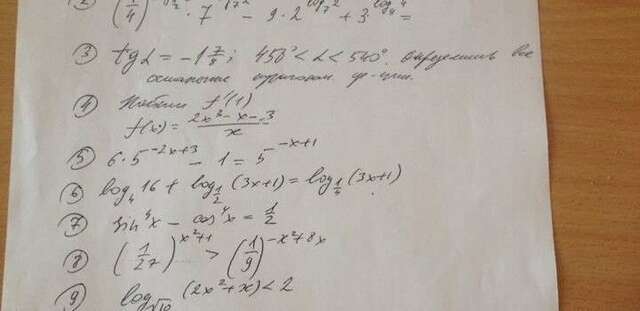 ② · 7 - 9 · 2 + 3 =
③ tg α = -1 7/8; 450° < α < 540°. Определить все
остальные тригоном. ф-ции.
④ Найти f'(1)
f(x) = (2x³ - x - 3)/x
⑤ 6·5^(-2x+3) - 1 = 5^(-x+1)
⑥ log₄ 16 + log_(1/2) (3x+1) = log_(1/4) (3x+1)
⑦ sin⁴x - cos⁴x = 1/2
⑧ (1/27)^(x²+1) > (1/9)^(-x²+8x)
⑨ log_√10 (2x²+x) < 2